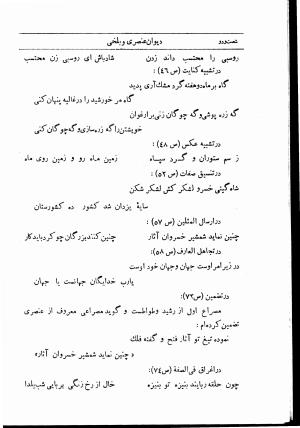 شصت‌ودو دیوان عنصری وبلخی
روسبی را محتسب داند زدن شادباش ای روسبی زن محتسب
در تشبیه کنایت (ص ۴۶) :
گاه بر ماه دوهفته گرد مشك آری پدید
گاه مر خورشید را در غالیه پنهان کنی
گه زره پوشی و گه چوگان زنی بر ارغوان
خویشتن را گه زره سازی و گه چوگان کنی
در تشبیه عکس (ص ۴۸) :
ز سم ستوران و گرد سپاه زمین ماه رو و زمین روی ماه
در تنسیق صفات (ص ۵۲) :
شاه گیتی خسرو لشکر کش لشکر شکن
سایهٔ یزدان شه کشور ده کشورستان
در ارسال المثلین (ص ۵۷) :
چنین نماید شمشیر خسروان آثار چنین کنند بزرگان چو کرد باید کار
در تجاهل العارف (ص ۵۸) :
در زیر امر اوست جهان وجهان خود اوست
یارب خدایگان جهانست یا جهان
در تضمین (ص۷۲) :
مصراع اول از رشید وطواطست و گوید مصراعی معروف از عنصری
تضمین کرده‌ام :
نموده تیغ تو آثار فتح و گفته فلك
« چنین نماید شمشیر خسروان آثار»
در اغراق فی الصفة (ص۷۴) :
چون حلقه ربایند بنیزه تو بنیزه خال از رخ زنگی بربایی شب یلدا